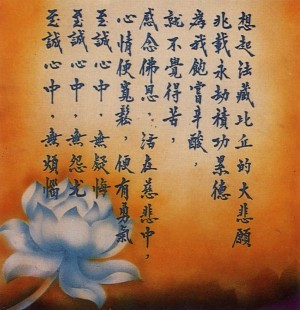 想起法藏比丘的大悲願
兆載永劫積功累德
為我飽嘗辛酸，
就不覺得苦，
感念佛恩，活在慈悲中，
心情便寬鬆，便有勇氣
至誠心中，無疑悔
至誠心中，無怨尤
至誠心中，無煩惱